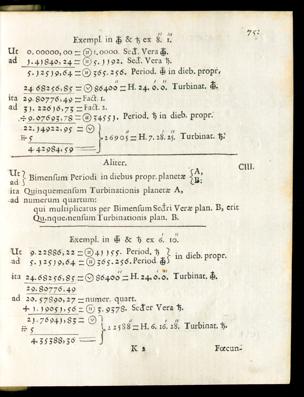 75.
Exempl. in ♁ & ♄ ex 8. 1.
Ut 0.00000,00 = Ⓗ 1.0000. Sect. Vera ♁.
ad 1.41840,24 = Ⓗ 5.1192. Sect. Vera ♄.
5.12519,64 = Ⓗ 365.256. Period. ♁ in dieb. propr.
24.68256,85 = Ⓥ 86400" = H. 24. 0. 0. Turbinat. ♁.
ita 29.80776,49 = Fact. 1.
ad 31.22616,73 = Fact. 2.
÷ 9.07693,78 = Ⓗ Period. ♄ in dieb. propr.
22.14922,95 = Ⓥ
÷ 5
4.42984,59
26905" = H. 7. 28. 25. Turbinat. ♄.
Aliter.
CIII.
Ut } Bimensum Periodi in diebus propr. planetæ { A,
ad } { B;
ita Quinquemensum Turbinationis planetæ A,
ad numerum quartum:
qui multiplicatus per Bimensum Sectri Veræ plan. B, erit
Quinquemensum Turbinationis plan. B.
Exempl. in ♁ & ♄ ex 6. 10.
Ut 9.22886,22 = Ⓗ 41155. Period. ♄ } in dieb. propr.
ad 5.12519,64 = Ⓗ 365.256. Period ♁
ita 24.68256,85 = Ⓥ 86400" = H. 24. 0. 0. Turbinat. ♁.
29.80776,49
ad 20.57890,27 = numer. quart.
+ 1.19053,56 = Ⓗ 3.9378. Secter Vera ♄.
21.76943,83 = Ⓥ
÷ 5
4.35388,36 =
22588" = H. 6. 16. 28. Turbinat. ♄.
K 2 Fœcun-